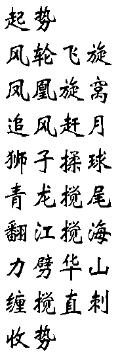 起势
风轮飞旋
凤凰旋窝
追风赶月
狮子揉球
青龙搅尾
翻江搅海
力劈华山
缠搅直刺
收势